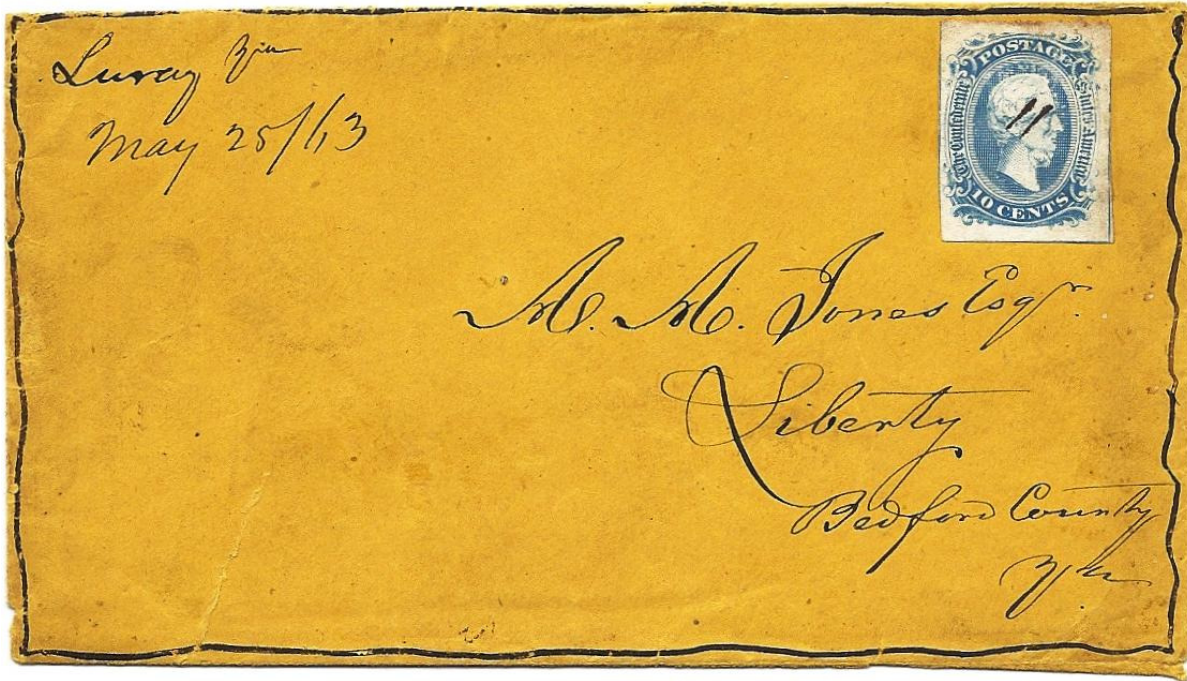 Luray Va
May 25/63
POSTAGE
The Confederate States America
10 CENTS
M. M. Jones Esqr.
Liberty
Bedford County
Va